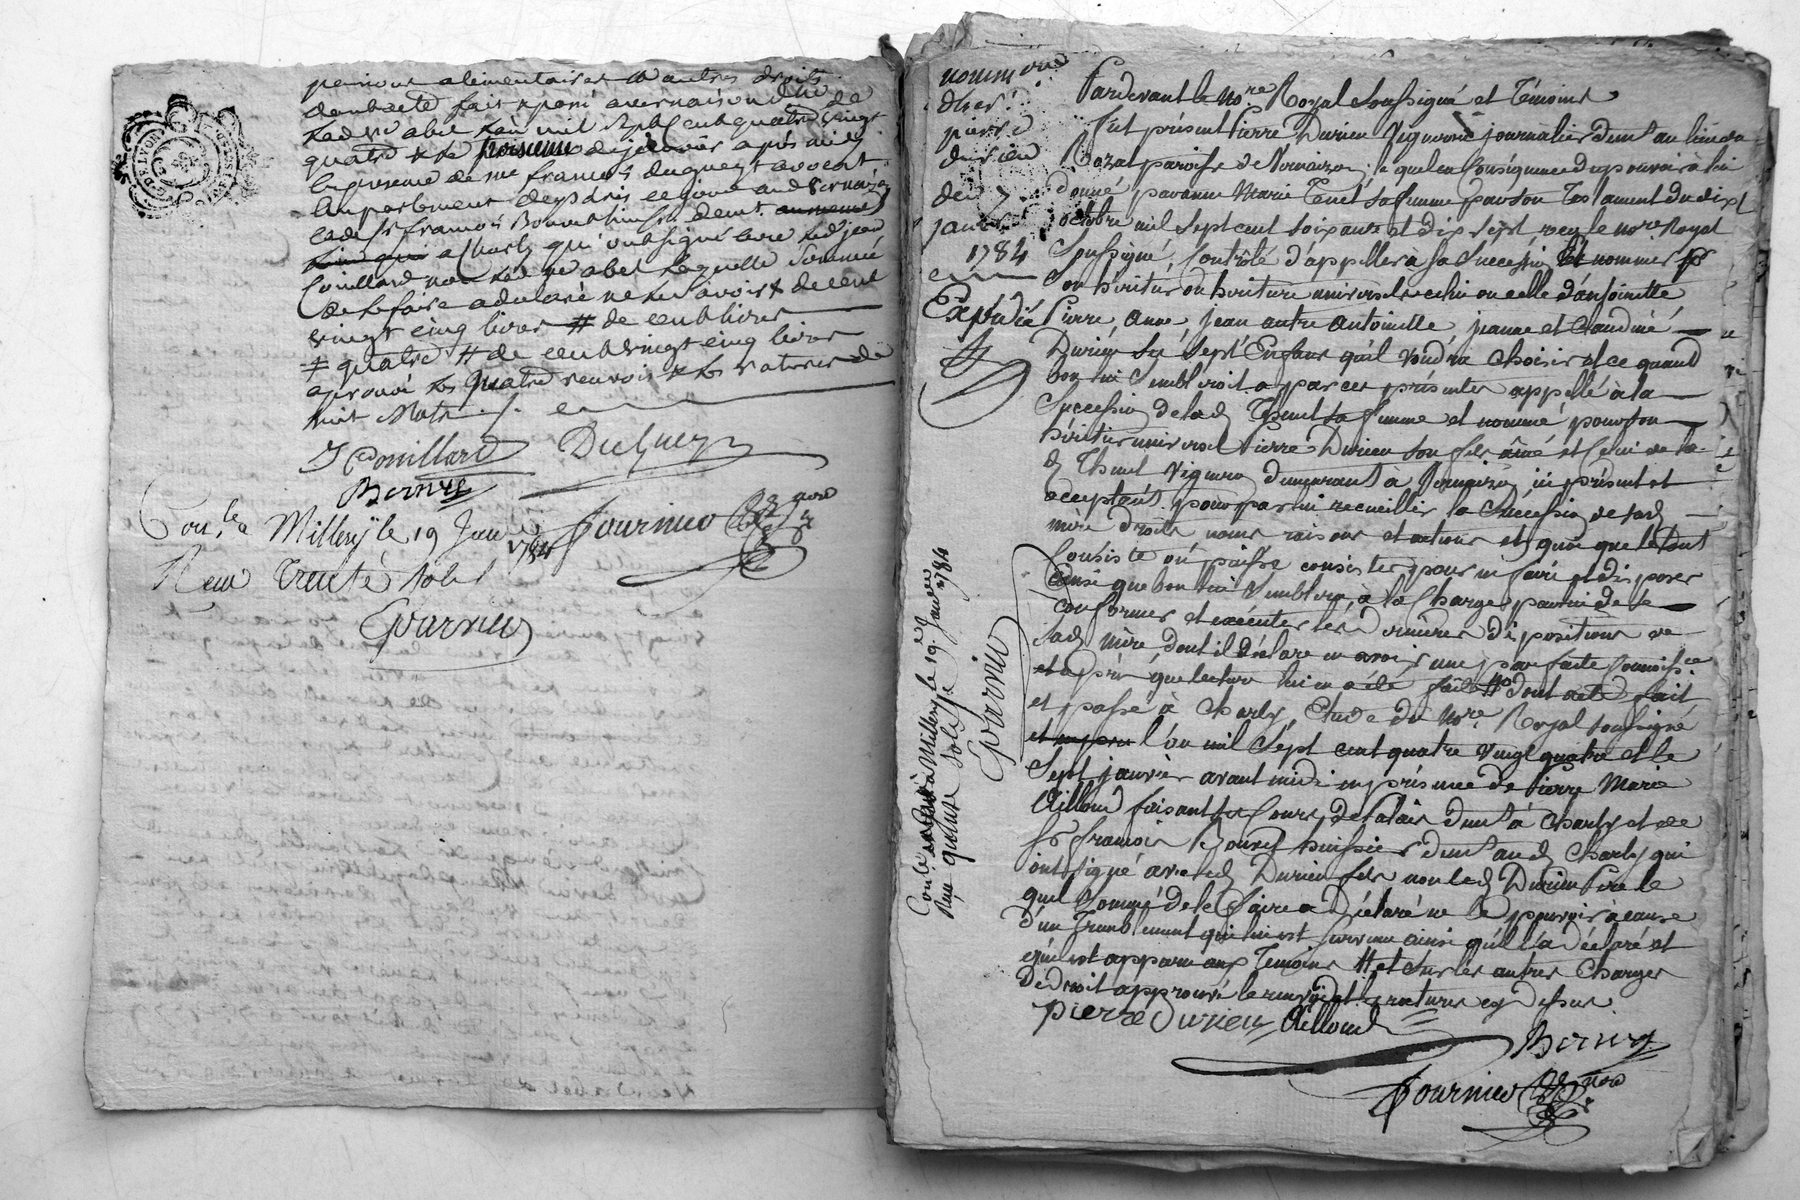 pensions alimentaires & autres droits
dont acte fait & passé
quatre & le troisieme de janvier après midi
en presence de me françois dugueyt avocat
en parlement
françois Bouvet huissier demt
a Charly qui ont signé avec led. jean
Couillard non lad. ve abel laquelle sommée
de le faire a declaré ne le savoir # de cent
vingt cinq livres # de cent livres
# quatre # de cent vingt cinq livres
aprouvé les quatre renvois & les ratures de
huit mots ./.
J Couillard Duguey
Bernvy
Fournier nore
Con.lé a Millery le 19 Janvier 1784
Reçu Trente sols
Gvarnier
DE LYON
nomin on
d'her.
pierre
durieu
du 7
janvier
1784
Expédié
Pardevant le Nore Royal soussigné et Témoins
fut présent Pierre Durieu Vigneron journalier demt au lieu de
Bozat paroisse de Vernaizon, lequel en conséquence du pouvoir à lui
donné par anne Marie Tenet sa femme par son Testament du dix
octobre mil sept cent soixante et dix sept reçu le nore Royal
soussigné, Controlé d'appeller à sa succession Et nommer pr
son héritier ou héritiere universelle celui ou celle d'antoinette,
Pierre, anne, jean autre antoinette, jeanne et claudine
Durieu ses sept Enfans qu'il voudra choisir et ce quand
bon lui sembleroit a par ces présentes appellé à la
succession de lad. Thenet sa femme et nommé pour son
héritier universel Pierre Durieu son fils aîné et celui de la
d. Thenet Vigneron demeurant à Vernaizon ici présent et
acceptant pour par lui recueillir la succession de sad.
mère droits noms raisons et actions et quoi que le tout
Consiste où puisse consister pour en faire et disposer
Ainsi que bon lui semblera à la Charge par lui de se
conformer et exécuter les dernières dispositions de
sad. mère, dont il déclare en avoir une parfaite connoissce
et après que lecture lui en a été faite # dont acte fait
et passé à Charly Etude du Nore Royal soussigné
l'an mil sept cent quatre vingt quatre et le
sept janvier avant midi en présence de Pierre Marie
Ailloud faisant les Cours de Palais demt à Charly et de
sr françois Bouvet huissier demt aud. Charly qui
ont signé avec led. Durieu fils non led. Durieu Pere le
quel sommé de le faire a déclaré ne le pouvoir à cause
d'un Tremblement qui lui est survenu ainsi qu'il l'a déclaré et
qu'il est apparu aux Temoins # et sur les autres Charges
De droit approuvé le renvoi et la rature cy dessus
pierre Durieu Ailloud
Bernvy
Fournier nore
Con.lé à Millery le 19e Janvier 1784
Reçu quatorze sols
Gvarnier